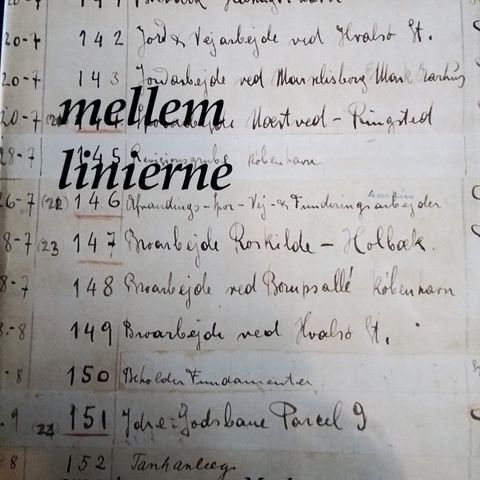 20-7 142 Jord & Vejarbejde ved Hvalsø St.
20-7 143 Jordarbejde ved Marselisborg Mark Aarhus
mellem
20-7 Næstved - Ringsted
28-7 145 Revisionsgrube København
linierne
26-7 (22) 146 Afvandings- Spor- Vej- & Funderingsarbejder
8-7 (23 147 Broarbejde Roskilde - Holbæk.
8-7 148 Broarbejde ved København
8.-8 149 Broarbejde ved Hvalsø St.
-8 150 Beholder Fundamenter
.9 (24 151 Ydre Godsbane Parcel 9
-8 152 Tankanlæg